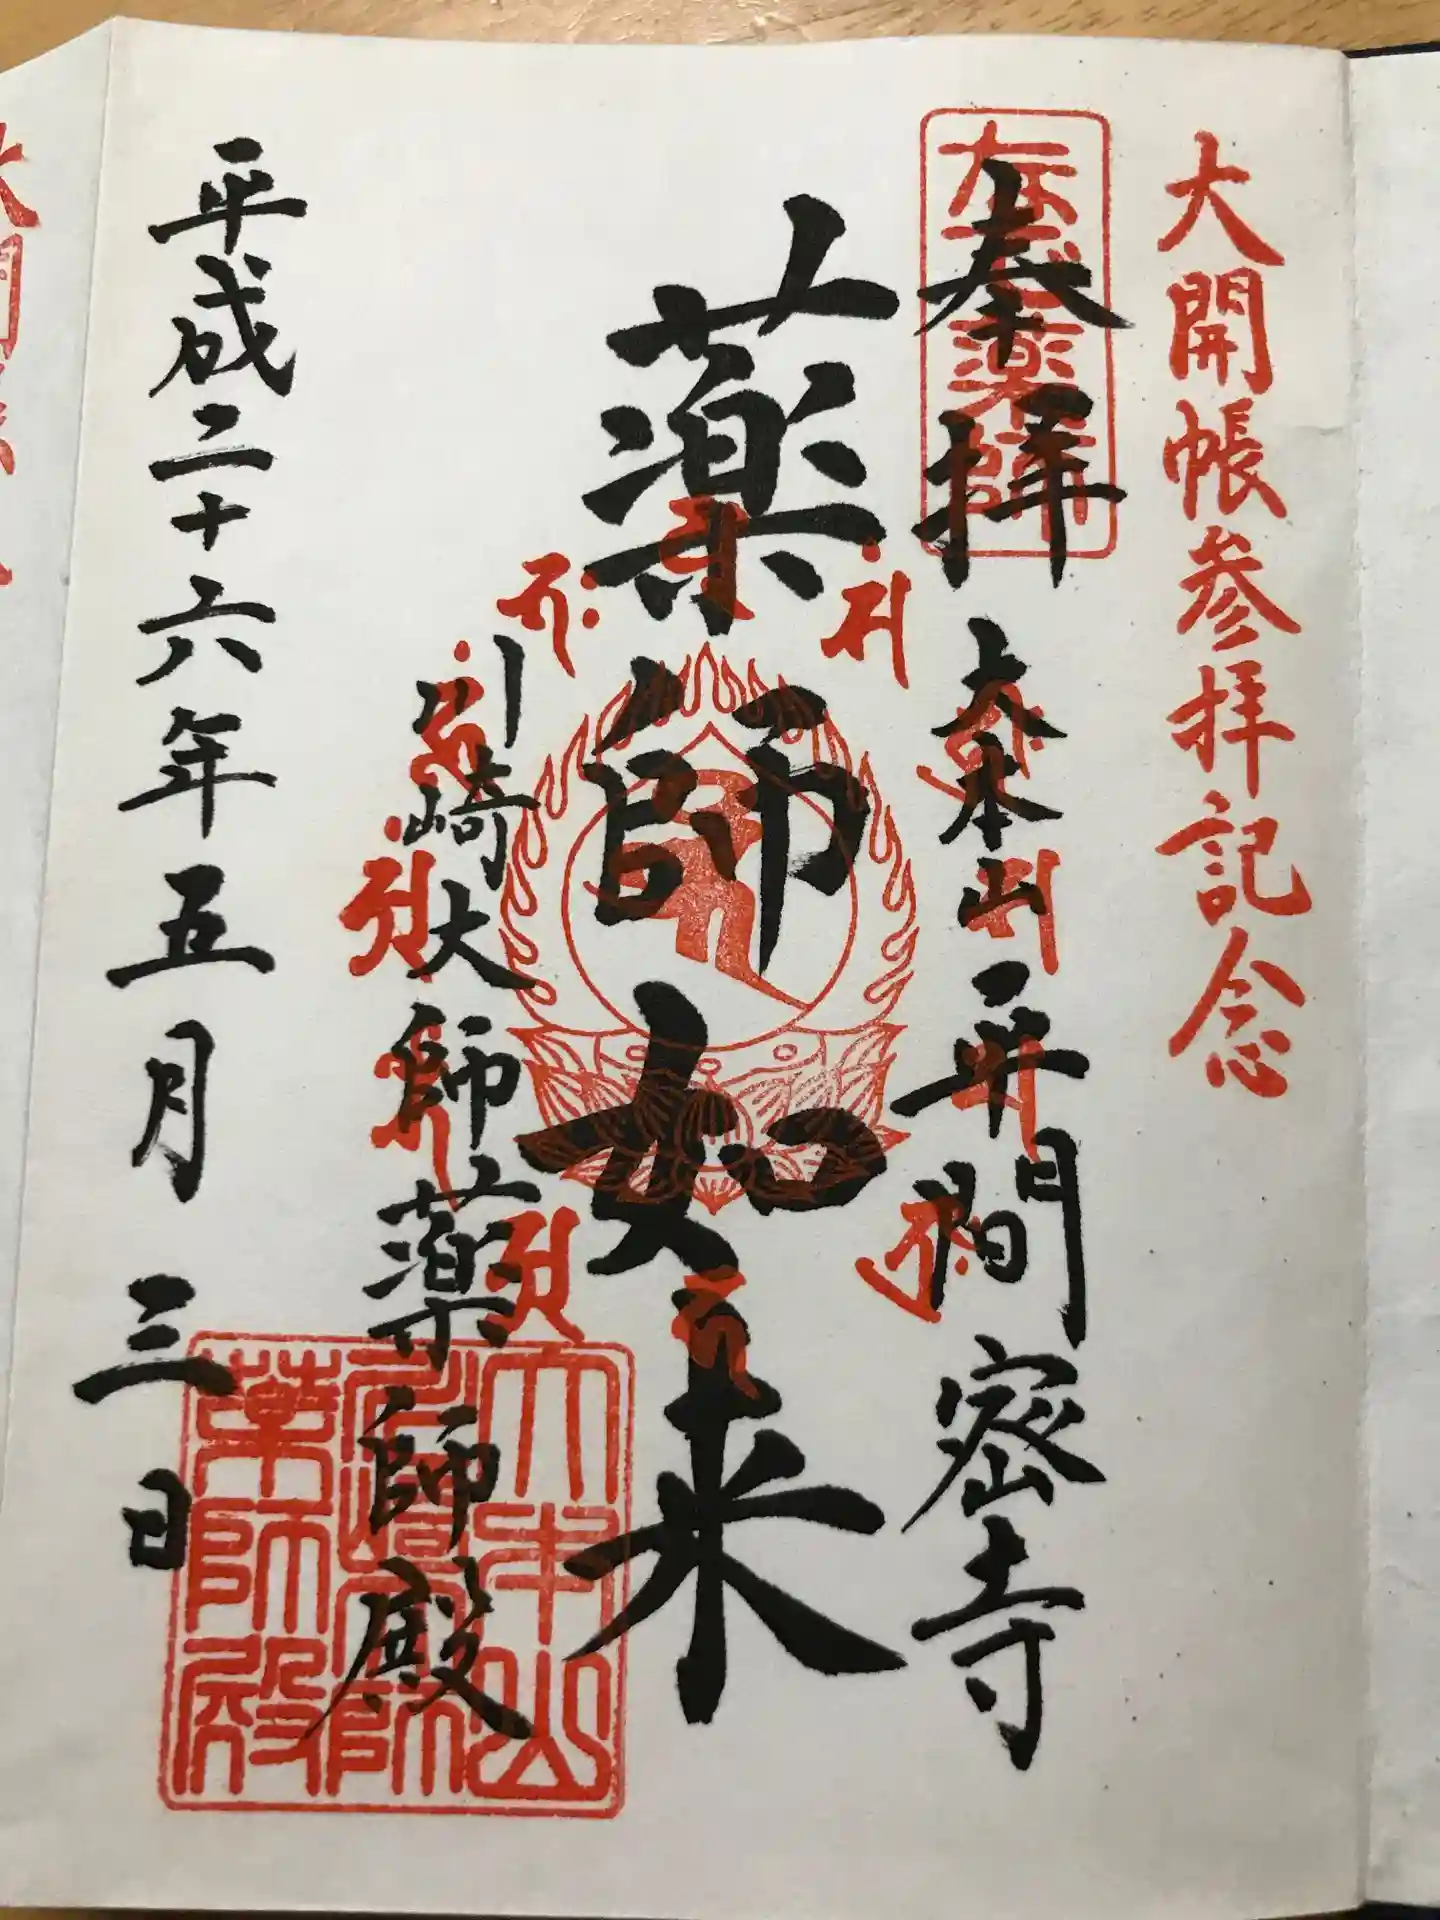 大開帳参拝記念
奉拝
大本山 平間密寺
薬師如来
川崎大師薬師殿
大本山
川崎大師
薬師殿
平成二十六年五月三日